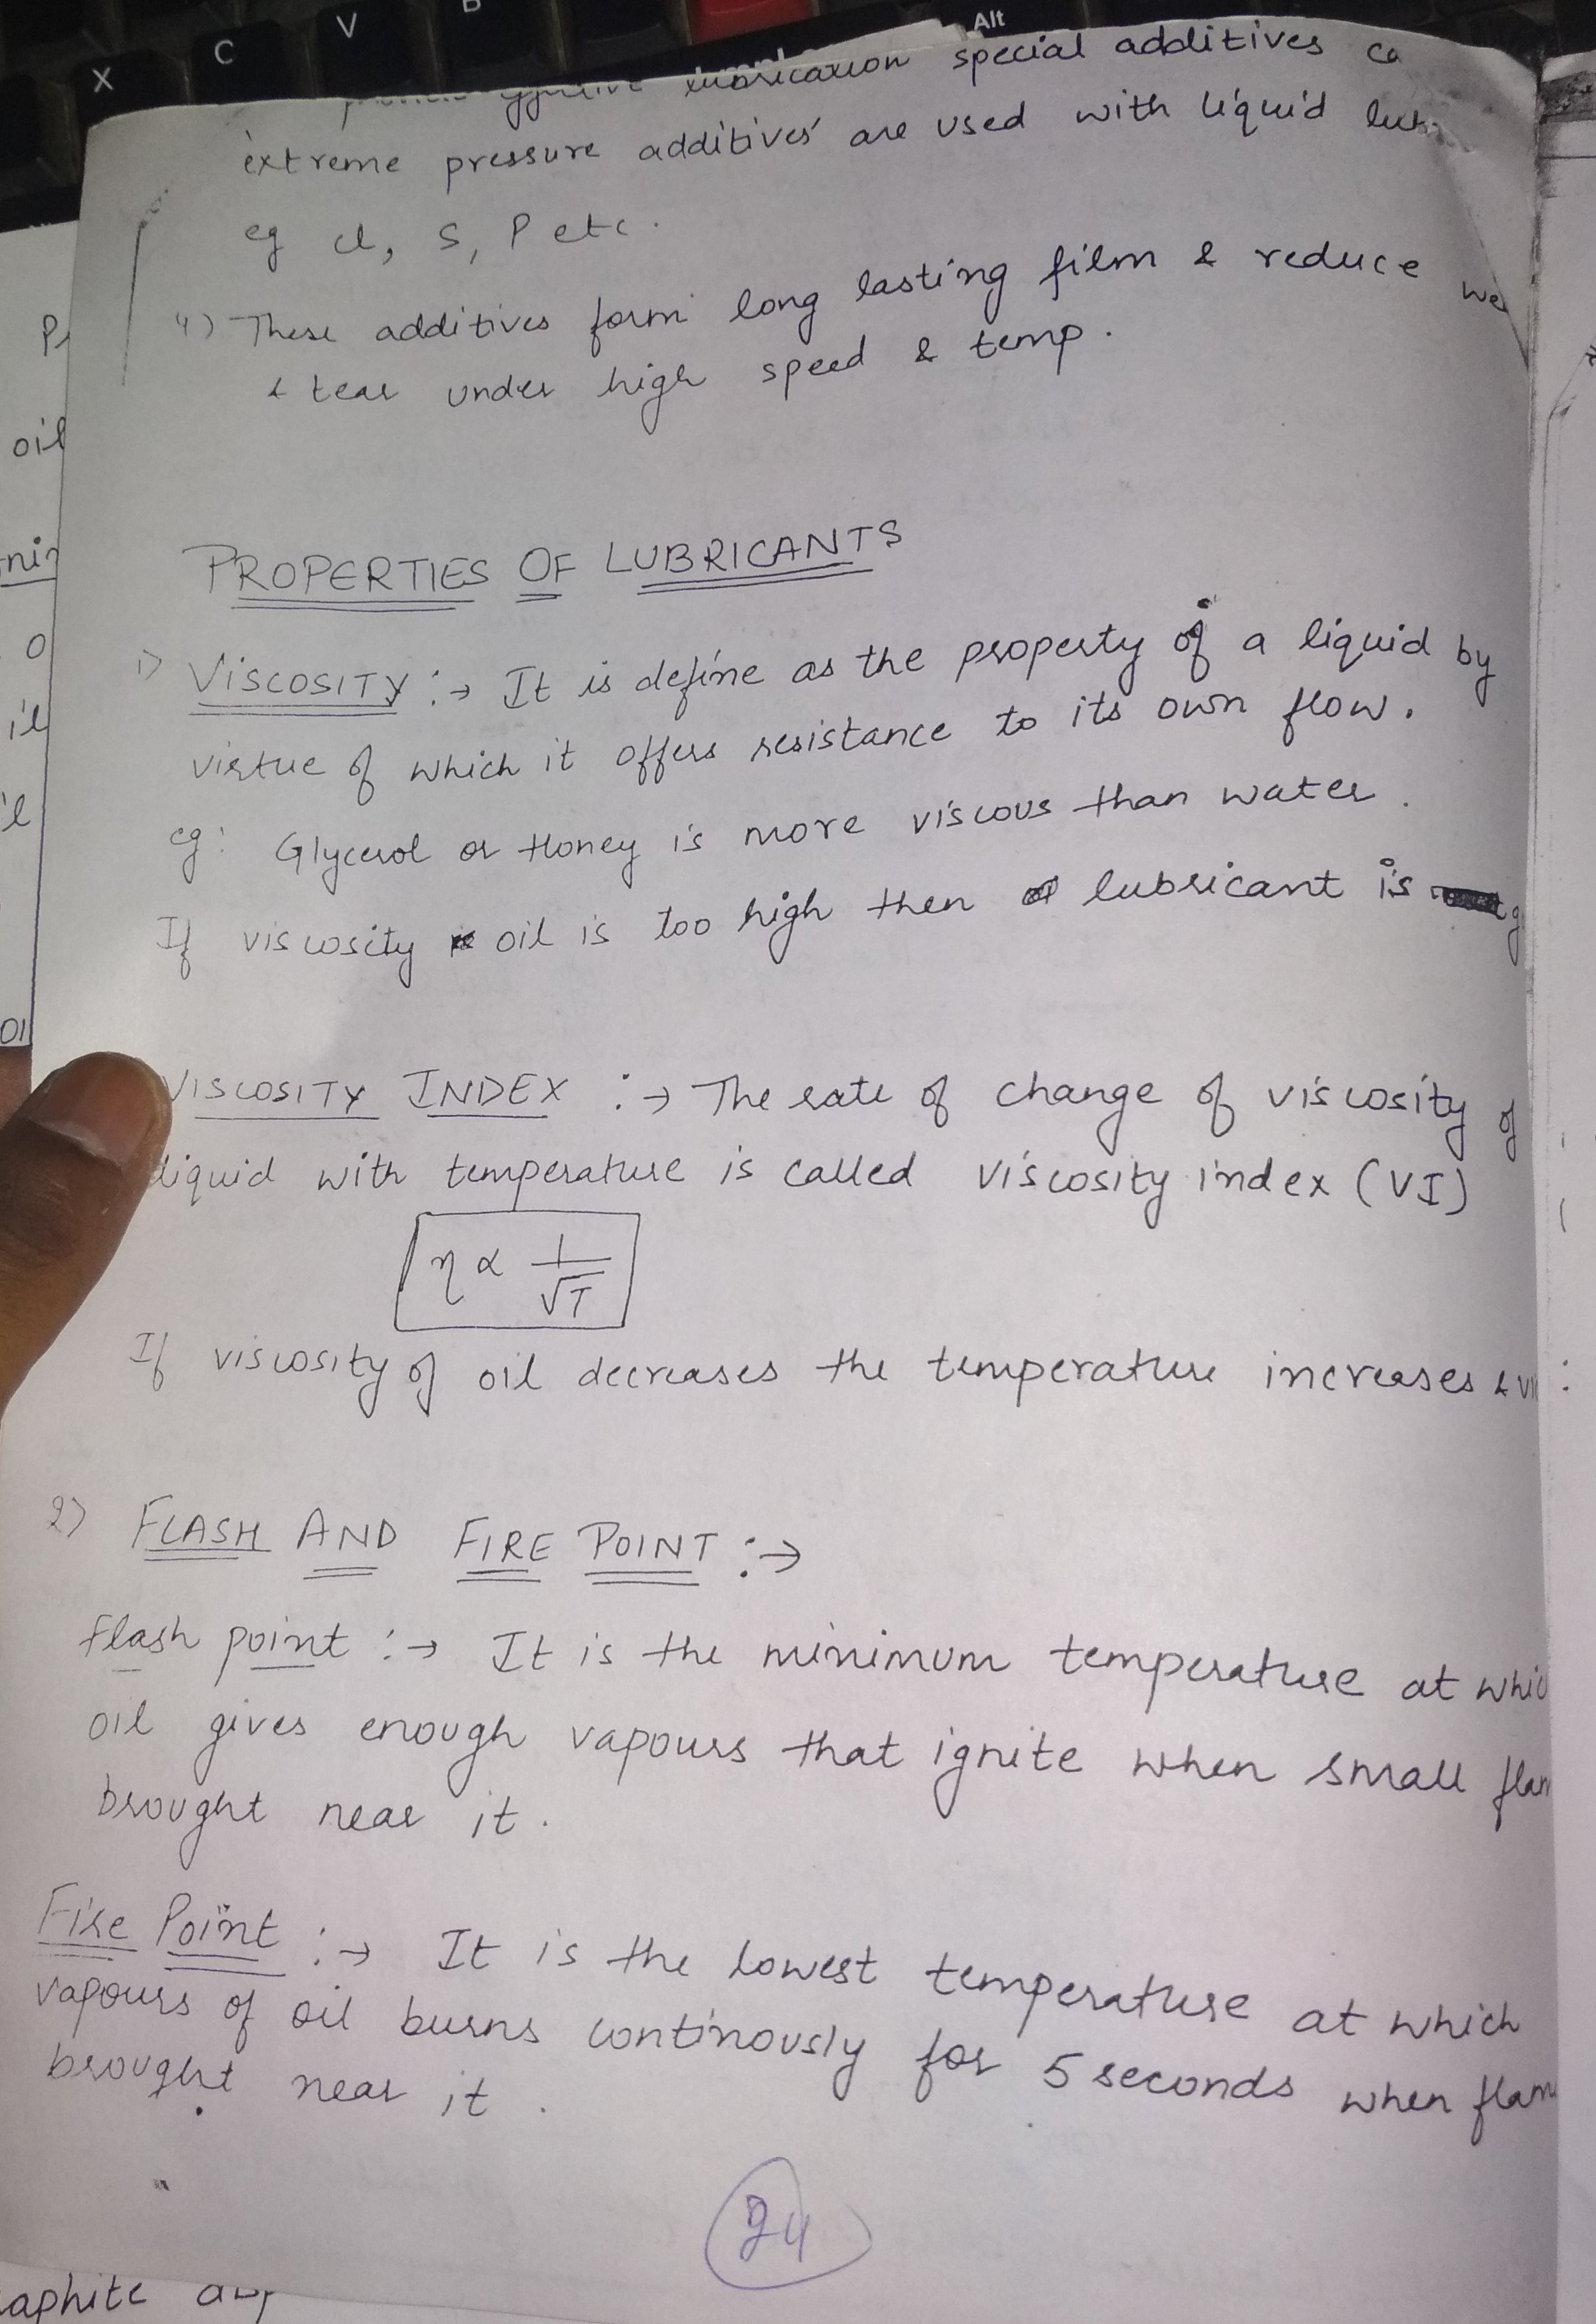 X C V B Alt
lubrication special additives
extreme pressure additives are used with liquid
eg Cl, S, P etc.
4) These additives form long lasting film & reduce
& tear under high speed & temp.
PROPERTIES OF LUBRICANTS
1) VISCOSITY :→ It is define as the property of a liquid by
virtue of which it offers resistance to its own flow.
eg: Glycerol or Honey is more viscous than water.
If viscosity oil is too high then lubricant is
VISCOSITY INDEX :→ The rate of change of viscosity of
liquid with temperature is called viscosity index (VI)
η ∝ 1/√T
If viscosity of oil decreases the temperature increases &
2) FLASH AND FIRE POINT :→
Flash point :→ It is the minimum temperature at
oil gives enough vapours that ignite when small
brought near it.
Fire Point :→ It is the lowest temperature at which
vapours of oil burns continously for 5 seconds when
brought near it.
24
oil